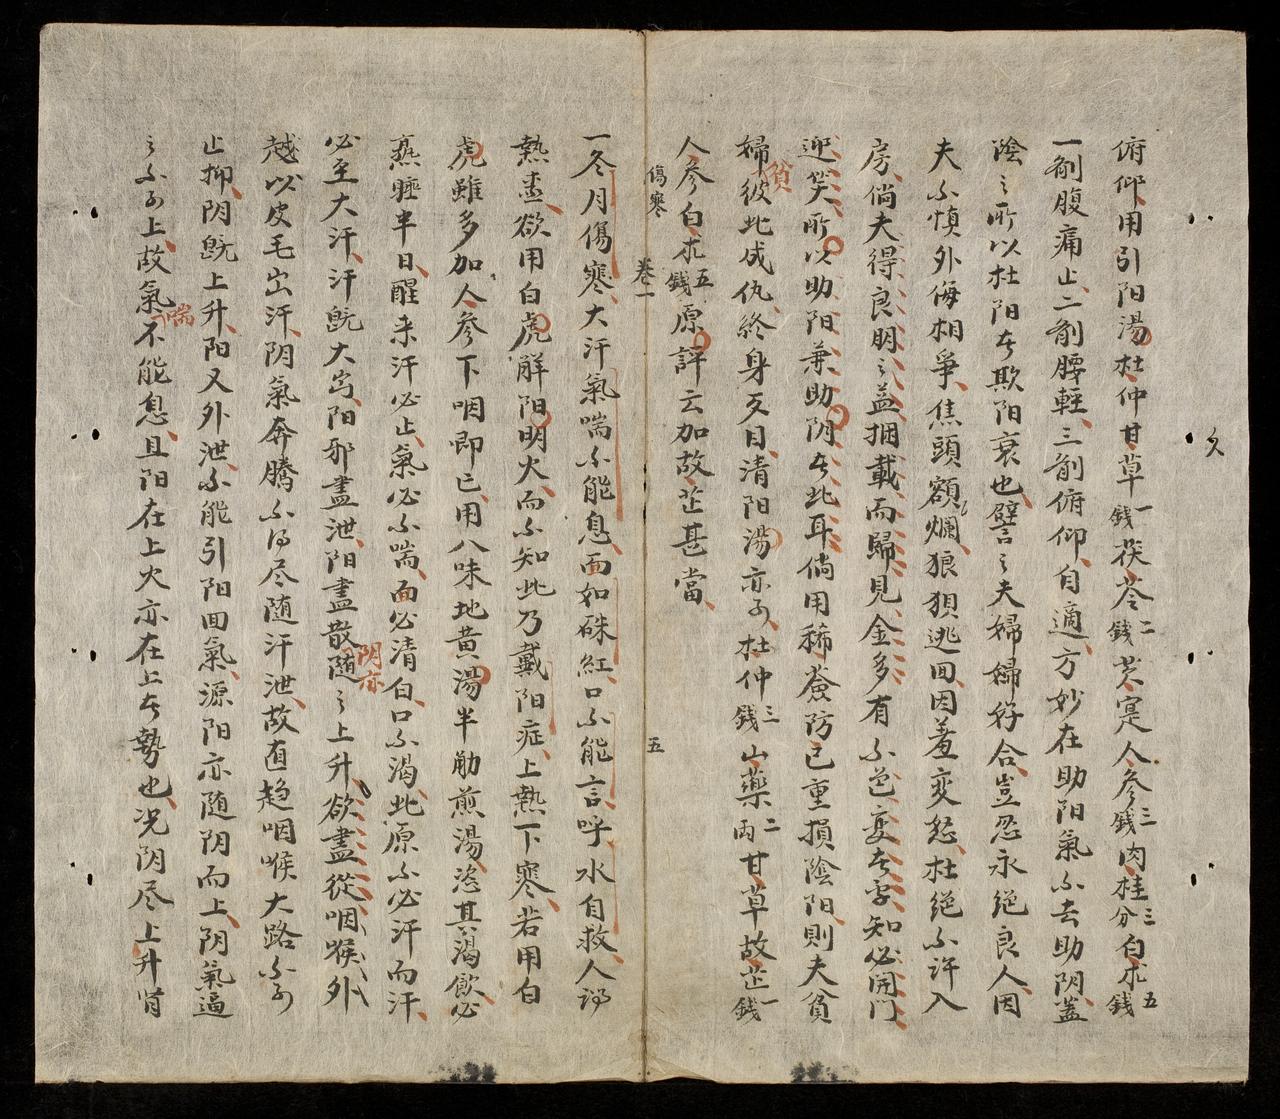 俯仰用引阳湯杜仲甘草一錢茯苓二錢芡寔人參三錢肉桂三分白朮五錢
一剤腹痛止二剤腰輕三剤俯仰自適方妙在助阳氣不去助阴蓋
陰之所以杜阳者欺阳衰也譬之夫婦婦好合豈忍永絕良人因
夫不慎外侮相爭焦頭額爛狼狽逃回因羞变怒杜絕不許入
房倘夫得良朋之益捆載而歸見金多有不色变者乎知必開門
迎笑所以助阳兼助阴者此耳倘用稀薟防己重損陰阳則夫貧
婦貧彼此成仇終身反目清阳湯亦可杜仲三錢山藥二両甘草故芷一錢
人參白朮五錢原評云加故芷甚當
傷寒
卷一
五
一冬月傷寒大汗氣喘不能息面如硃紅口不能言呼水自救人謂
熱盡欲用白虎解阳明火而不知此乃戴阳症上熱下寒若用白
虎雖多加人參下咽即亡用八味地黄湯半觔煎湯恣其渴飲必
熟睡半日醒来汗必止氣必不喘面必清白口不渴此原不必汗而汗
必至大汗汗既大岀阳邪盡泄阳盡散阴亦随之上升欲盡從咽喉外
越以皮毛岀汗阴氣奔騰不得尽随汗泄故直趋咽喉大路不可
止抑阴既上升阳又外泄不能引阳回氣源阳亦随阴而上阴氣逼
之不可上故氣喘不能息且阳在上火亦在上者勢也况阴尽上升肾